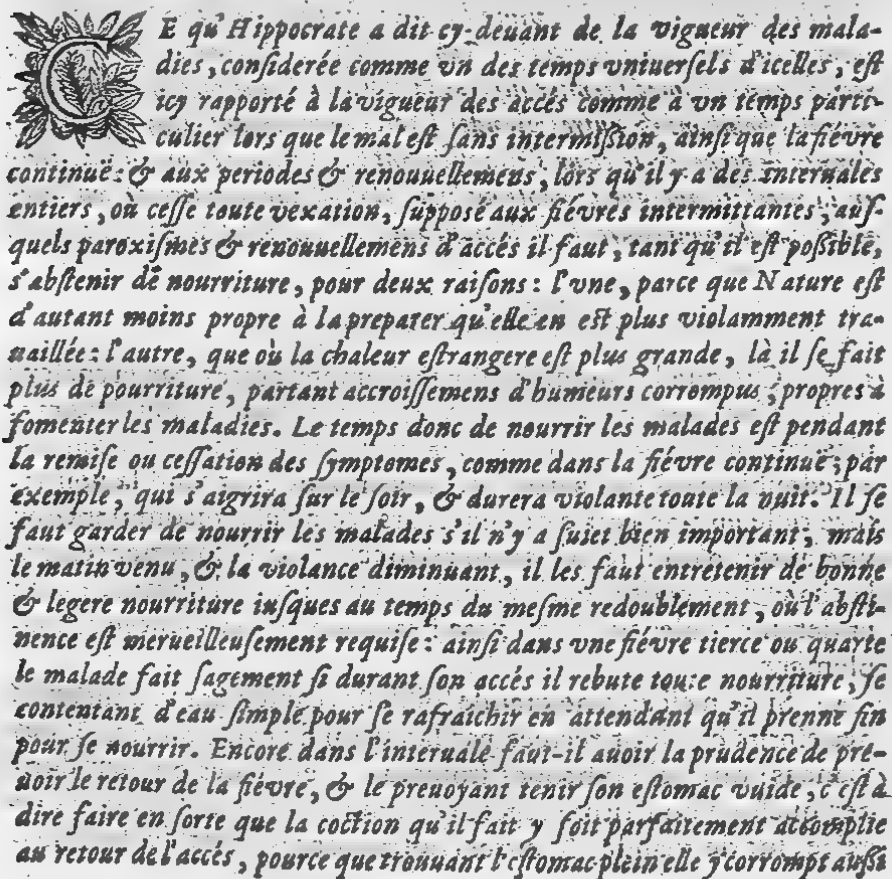 CE qu'Hippocrate a dit cy-deuant de la vigueur des mala-
dies, considerée comme vn des temps vniuersels d'icelles, est
icy rapporté à la vigueur des accés comme à vn temps parti-
culier lors que le mal est sans intermission, ainsi que la fiévre
continuë: & aux periodes & renouuellemens, lors qu'il y a des internales
entiers, où cesse toute vexation, supposé aux fiévres intermittantes, aus-
quels paroxismes & renouuellemens d'accés il faut, tant qu'il est possible,
s'abstenir de nourriture, pour deux raisons: l'vne, parce que Nature est
d'autant moins propre à la preparer qu'elle en est plus violamment tra-
uaillée: l'autre, que où la chaleur estrangere est plus grande, là il se fait
plus de pourriture, partant accroissemens d'humeurs corrompus, propres à
fomenter les maladies. Le temps donc de nourrir les malades est pendant
la remise ou cessation des symptomes, comme dans la fiévre continuë; par
exemple, qui s'aigrira sur le soir, & durera violante toute la nuit. Il se
faut garder de nourrir les malades s'il n'y a suiet bien important; mais
le matin venu, & la violance diminuant, il les faut entretenir de bonne
& legere nourriture iusques au temps du mesme redoublement, où l'absti-
nence est merueilleusement requise: ainsi dans vne fiévre tierce ou quarte
le malade fait sagement si durant son accés il rebute toute nourriture, se
contentant d'eau simple pour se rafraichir en attendant qu'il prenne fin
pour se nourrir. Encore dans l'interuale faut-il auoir la prudence de pre-
uoir le retour de la fiévre, & le preuoyant tenir son estomac vuide, c'est à
dire faire en sorte que la coction qu'il fait y soit parfaitement accomplie
au retour de l'accés, pource que trouuant l'estomac plein elle y corrompt aussi